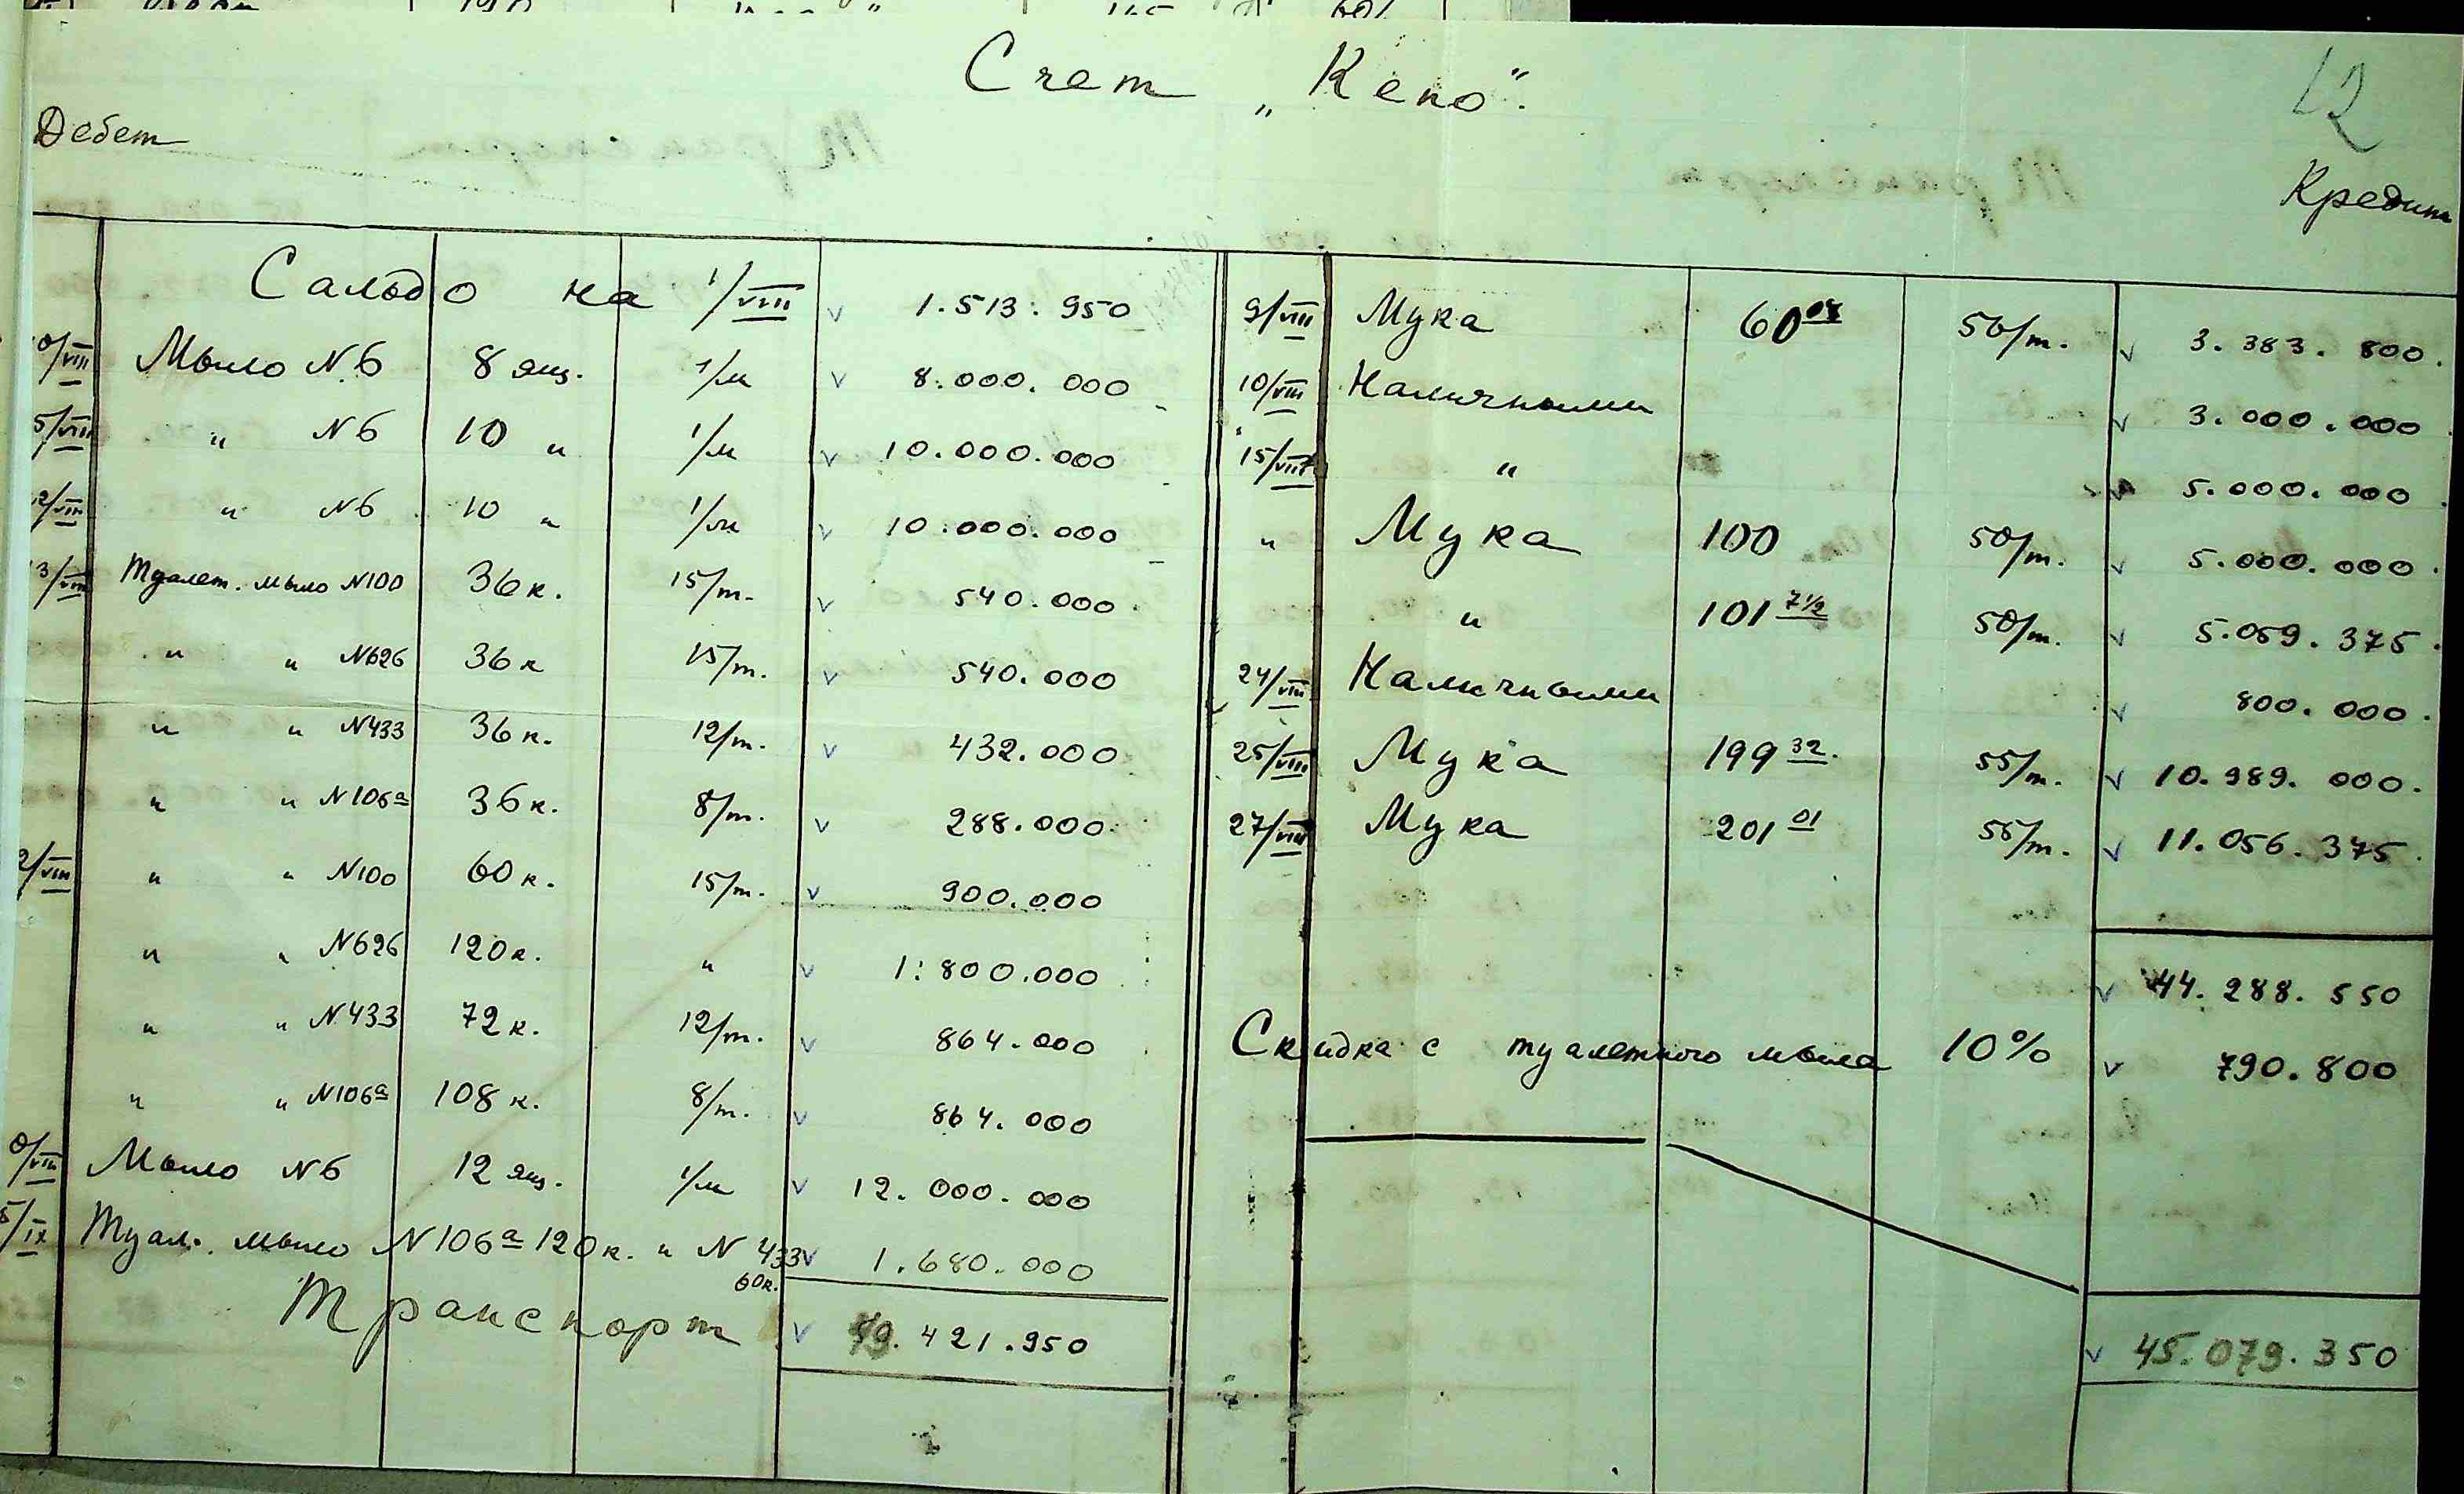 Счет „Кепо".
12
Дебет
Кредит
Сальдо на 1/VIII v 1.513.950
0/VIII Мыло N.6 8 ящ. 1/м v 8.000.000
5/VIII " N6 10 " 1/м v 10.000.000
2/VIII " N6 10 " 1/м v 10.000.000
3/VIII Туалет. мыло N100 36 к. 15/т. v 540.000
" " N626 36 к 15/т. v 540.000
" " N433 36 к. 12/т. v 432.000
" " N106а 36 к. 8/т. v 288.000
2/VIII " " N100 60 к. 15/т. v 900.000
" " N626 120 к. " v 1.800.000
" " N433 72 к. 12/т. v 864.000
" " N106а 108 к. 8/т. v 864.000
0/VIII Мыло N6 12 ящ. 1/м v 12.000.000
5/IX Туал. мыло N106а 120 к. и N 433 v 1.680.000
60к.
Транспорт v 49.421.950
9/VIII Мука 60 56/т. v 3.383.800.
10/VIII Наличными v 3.000.000
15/VIII " v 5.000.000
" Мука 100 50/т. v 5.000.000.
" 101 7½ 50/т. v 5.059.375.
24/VIII Наличными v 800.000.
25/VIII Мука 199 32. 55/т. v 10.989.000.
27/VIII Мука 201 01 55/т. v 11.056.375.
v 44.288.550
Скидка с туалетного мыла 10% v 790.800
v 45.079.350